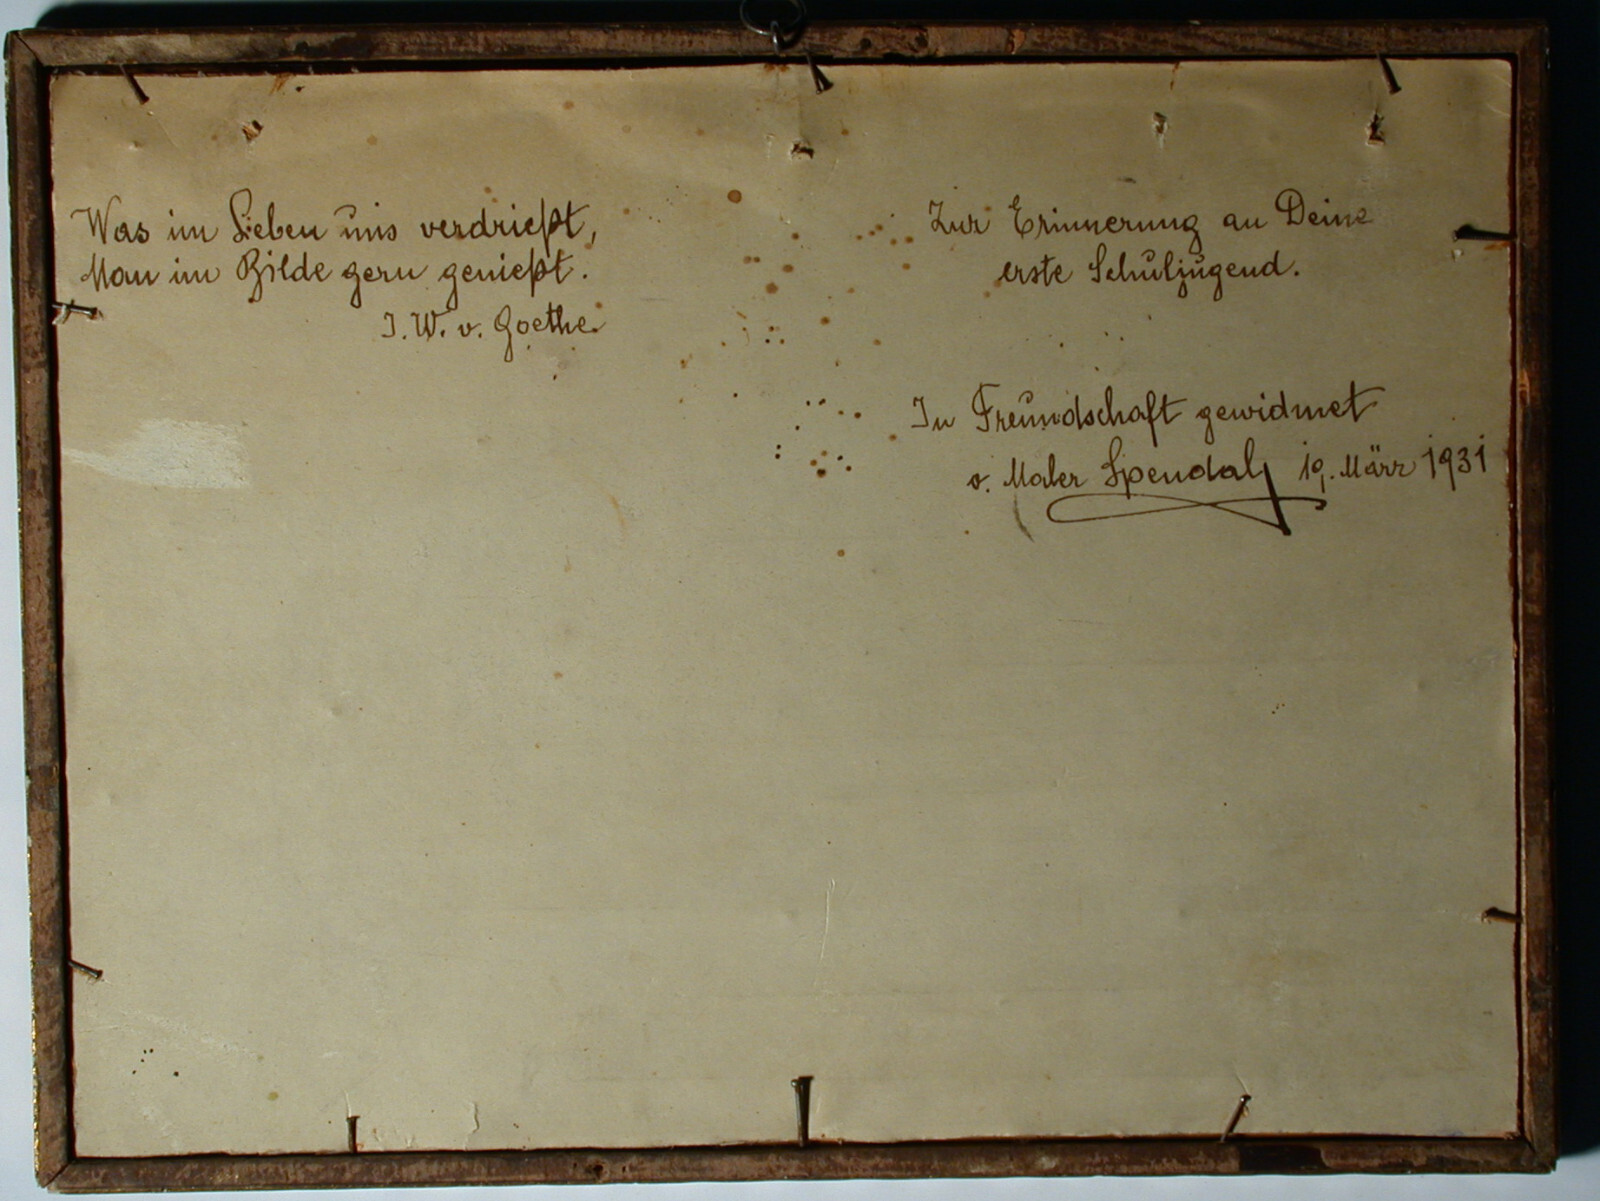 Was im Lieben uns verdrießt,
Man im Bilde gern genießt.
J. W. v. Goethe.
Zur Erinnerung an Deine
erste Schuljugend.
In Freundschaft gewidmet
v. Maler Spendal 19. März 1931